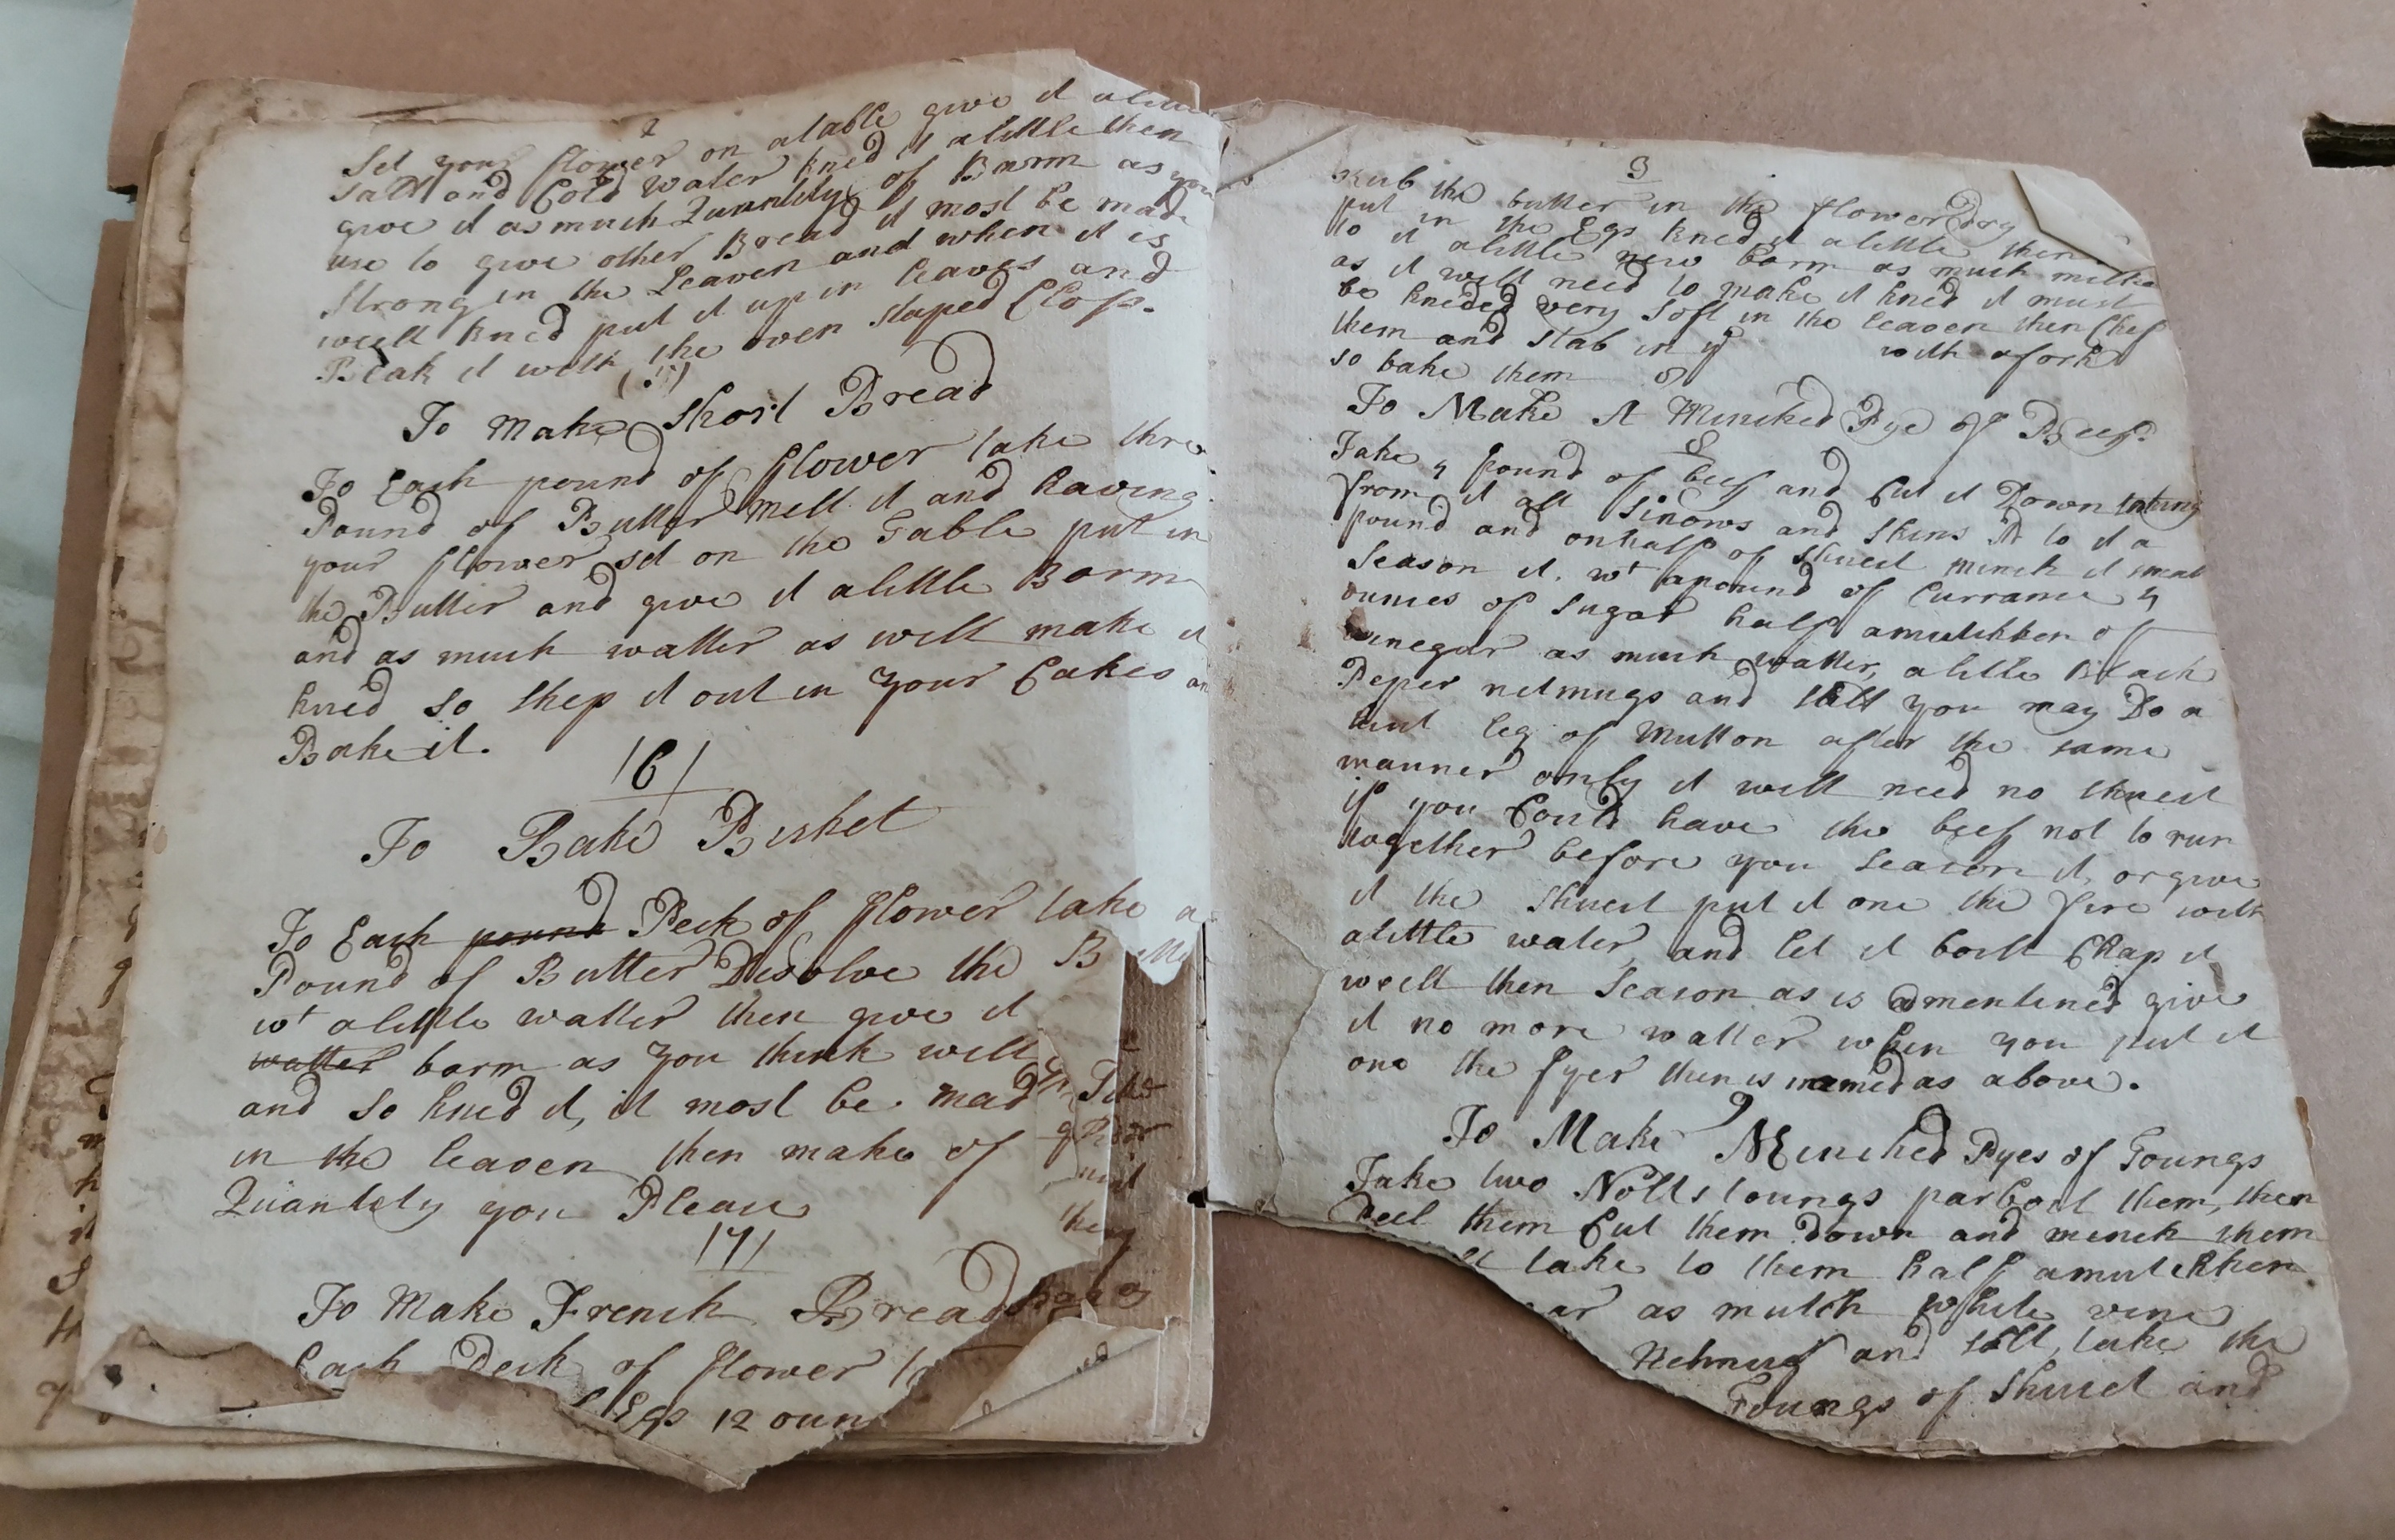 2
Set your flower on a table give it a little
salt and Cold water kned it a little then
give it as much Quantity of Barm as you
use to give other Bread it most be made
strong in the Leaven and when it is
well kned put it up in leaves and
Beak it with the oven staped Close.
(5)
To Make Short Bread
To Each pound of flower take thre
Pound of Butter melt it and having
your flower set on the Table put in
the Butter and give it alittle Barm
and as much watter as will make it
kned so shep it out in your Cakes an
Bake it.
/6/
To Bake Bisket
To Each pound Peck of flower take a
Pound of Butter Disolve the B
wt alittle watter then give it
watter barm as you think will
and so kned it, it most be mad
in the leaven then make of
Quantety you Please
/7/
To Make French Bread
Each Peck of flower
Egs 12 oun
3
Rub the butter in the flower dry
put in the Egs kned it alittle then
to it alittle new barm as much milke
as it will need to make it kned it must
be kneded very soft in the leaven then shep
them and stab in with afork
so bake them
8
To Make A Minched Pye of Beef
Take 4 pound of beef and Cut it Down taking
from it all sinows and skins to it a
pound and onhalf of shuest minch it smal
Season it. wt apound of Currance 4
ounces of sugar half amutchken of
vinegar as much watter, alitle Black
Peper netmugs and salt you may Do a
leg of Mutton after the same
manner only it will need no shuest
if you Could have the beef not to run
together before you season it, or give
it the shuest put it one the fire with
alittle water, and let it boill Chap it
well then Season as is amentined give
it no more watter when you put it
one the fyer then is named as above.
9
To Make Minched Pyes of Toungs
Take two Nolts toungs parboil them, then
Peel them Cut them down and minch them
take to them half amutchken
ar as mutch white vine
Netmug and salt, take the
Toungs of Shuet and